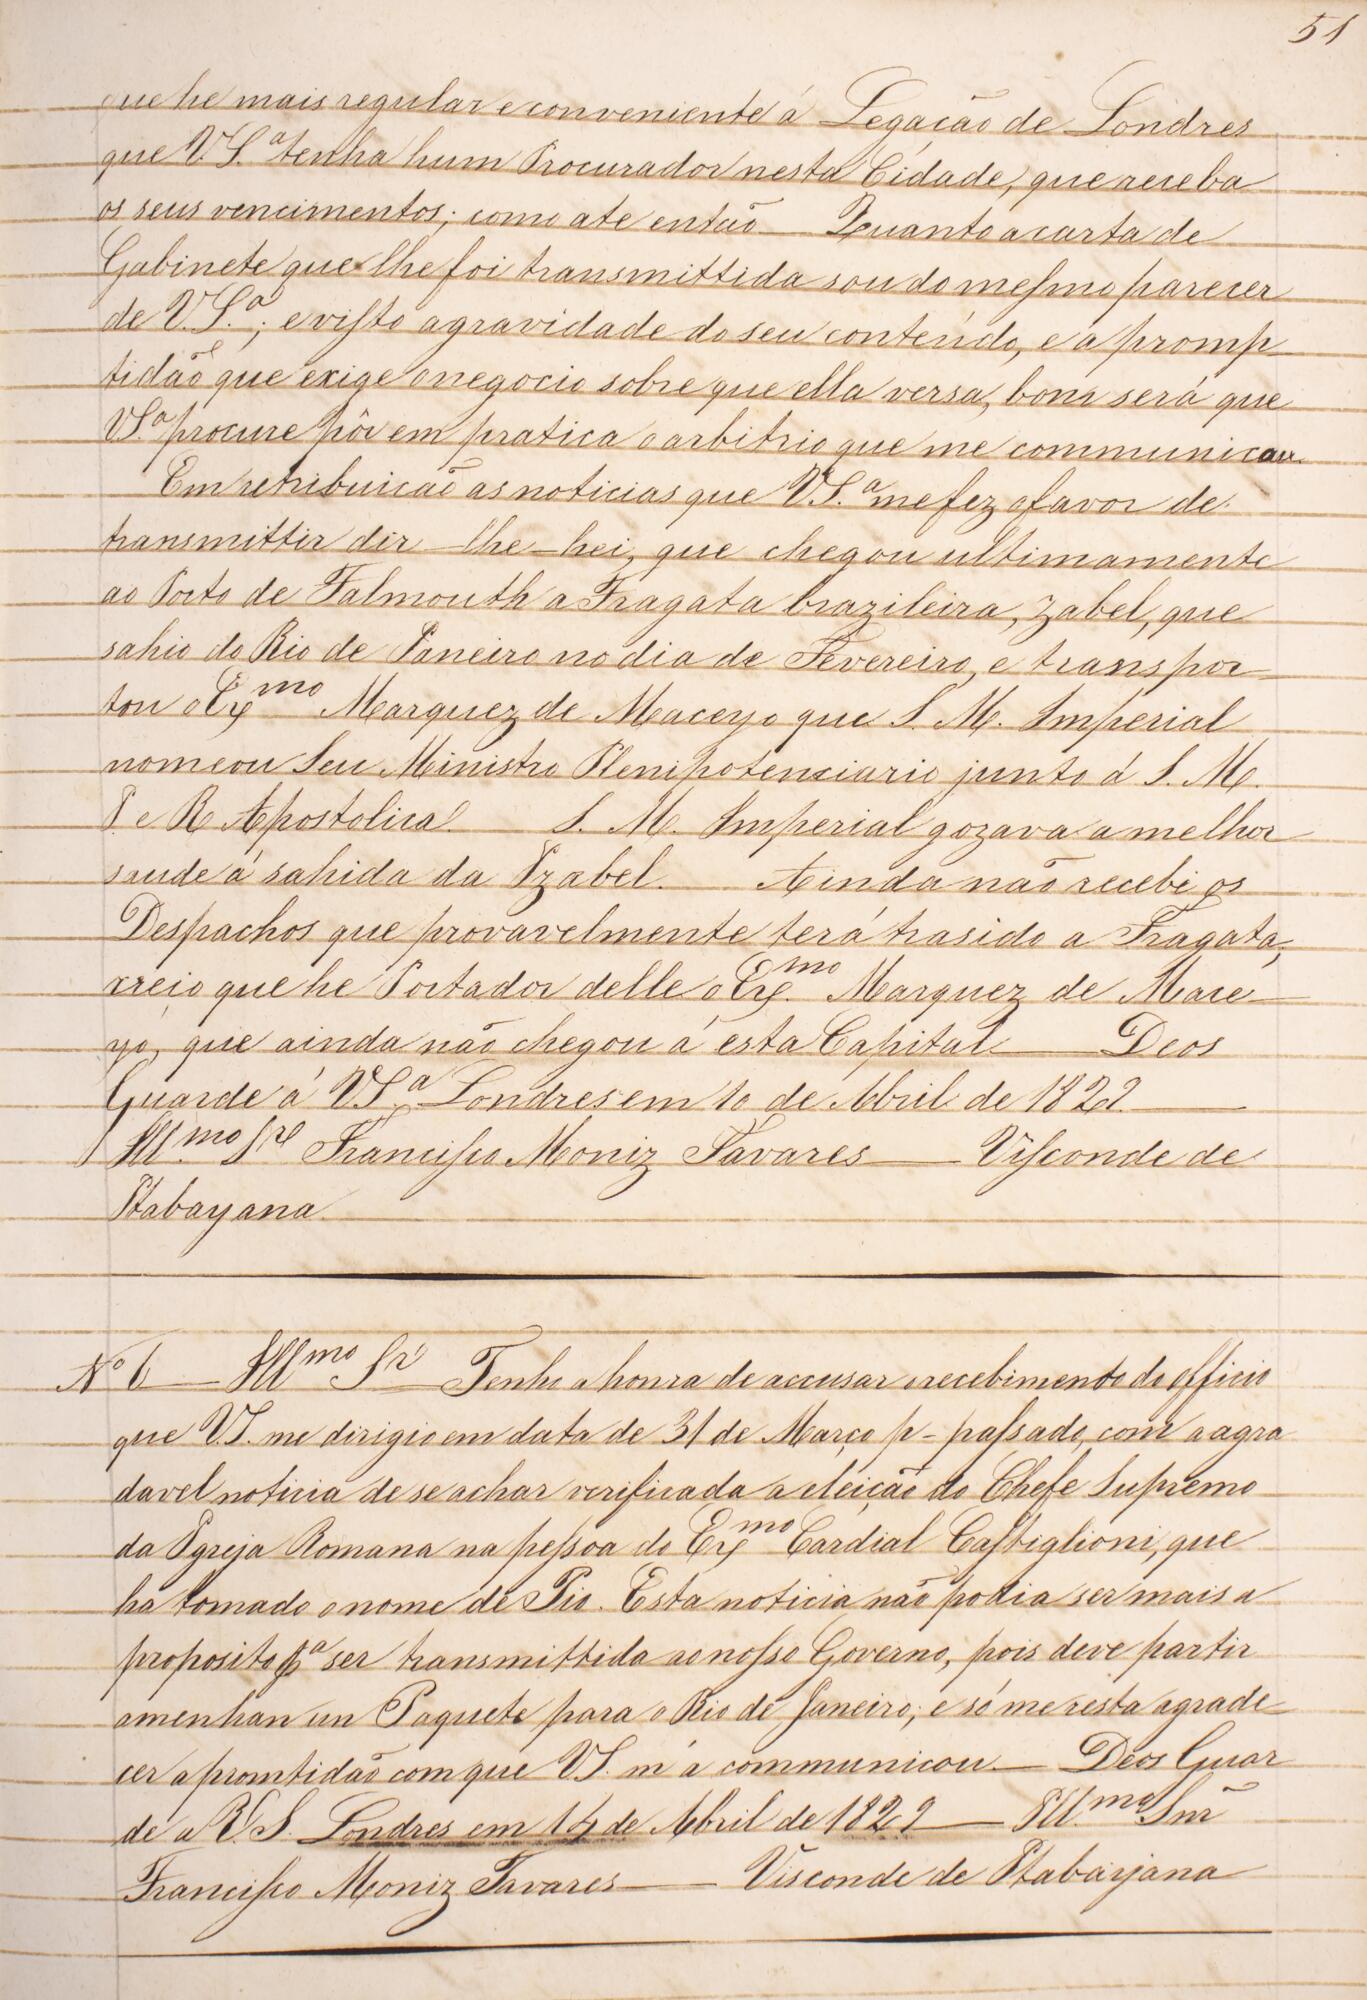 51
que he mais regular e conveniente á Legação de Londres
que V.S.ª tenha hum Procurador nesta Cidade, que receba
os seus vencimentos; como ate então — Quanto a carta de
Gabinete que lhe foi transmittida sou do mesmo parecer
de V.S.ª; e visto a gravidade do seu contendo, e a promp
tidão que exige o negocio sobre que ella versa, bom será que
VS.ª procure pôr em pratica o arbitrio que me communicou.
Em retribuicão as noticias que V.S.ª me fez o favor de
transmittir dir-lhe-hei, que chegou ultimamente
ao Porto de Falmouth a Fragata brazileira, Izabel, que
sahio do Rio de Janeiro no dia de Fevereiro, e transpor-
tou o Ex.mo Marquez de Maceyo que S. M. Imperial
nomeou Seu Ministro Plenipotenciario junto á S. M.
I. e R. Apostolica. S. M. Imperial gozava a melhor
saude á sahida da Izabel. Ainda não recebi os
Despachos que provavelmente terá trasido a Fragata,
creio que he Portador delle o Ex.mo Marquez de Mace-
yó, que ainda não chegou á esta Capital — Deos
Guarde á V.S.ª Londres em 10 de Abril de 1829 —
Ill.mo Sr Francisco Moniz Tavares — Visconde de
Itabayana
Nº 6 — Ill.mo Sr — Tenho a honra de accusar o recebimento do officio
que V.S. me dirigio em data de 31 de Março p- passado, com a agra
davel noticia de se achar verificada a eleição do Chefe Supremo
da Igreja Romana na pessoa do Ex.mo Cardial Castiglioni, que
ha tomado o nome de Pio. Esta noticia não podia ser mais a
proposito pª ser transmittida ao nosso Governo, pois deve partir
amenhan un Paquete para o Rio de Janeiro; e só me resta agrade-
cer a promtidão com que V.S. m'a communicou. — Deos Guar
de a V.S. Londres em 14 de Abril de 1829 — Ill.mo Snr
Francisco Moniz Tavares — Visconde de Itabayana